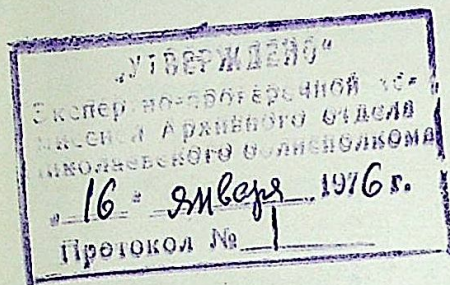 „УТВЕРЖДЕНО"
Экспертно-проверочной ко-
миссией Архивного отдела
Николаевского облисполкома
„16" января 1976 г.
Протокол № 1